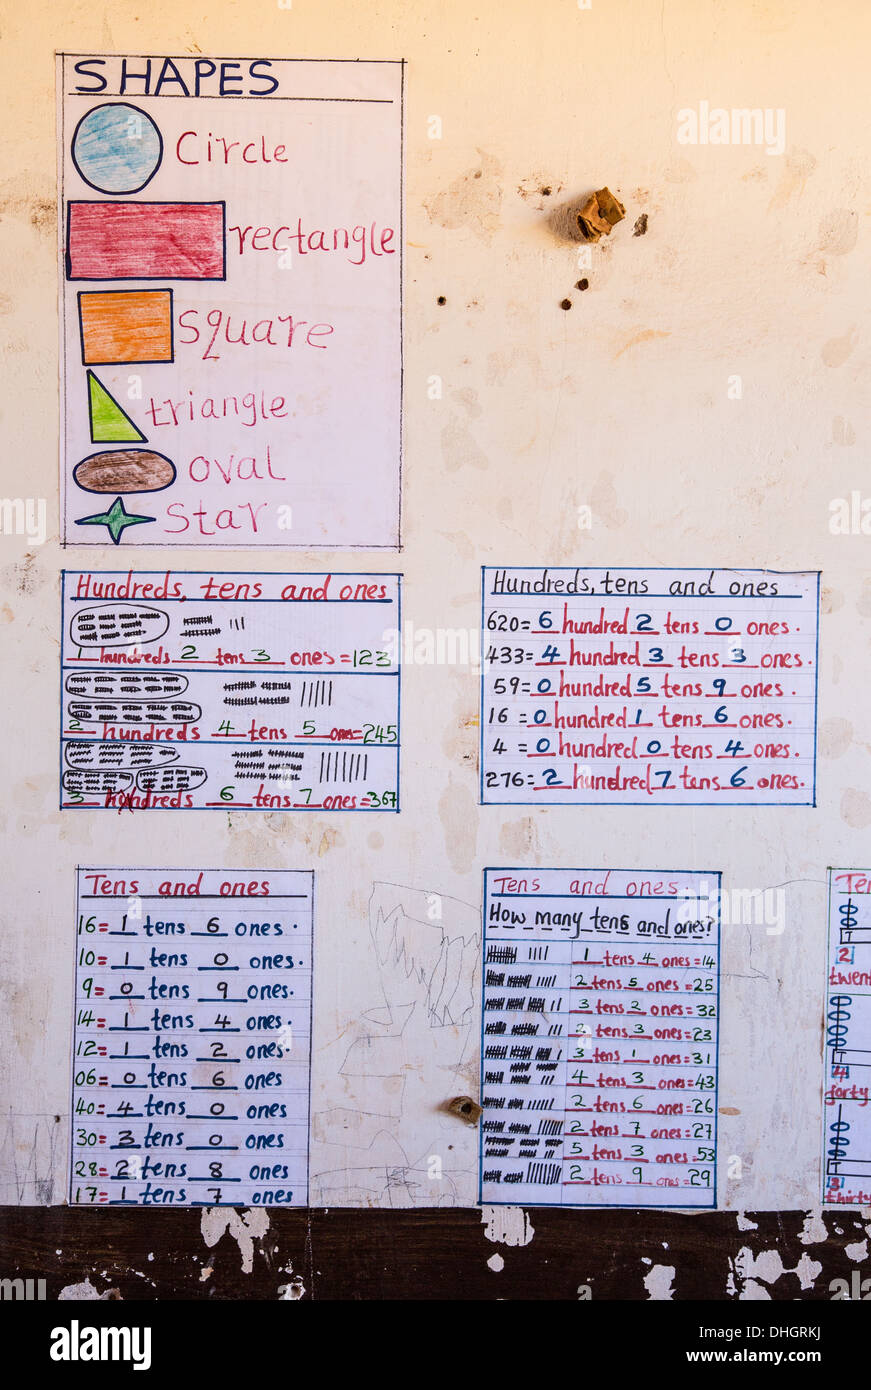 SHAPES
Circle
rectangle
square
triangle
oval
star
Hundreds, tens and ones
1 hundreds 2 tens 3 ones = 123
2 hundreds 4 tens 5 ones = 245
3 hundreds 6 tens 7 ones = 367
Hundreds, tens and ones
620 = 6 hundred 2 tens 0 ones.
433 = 4 hundred 3 tens 3 ones.
59 = 0 hundred 5 tens 9 ones.
16 = 0 hundred 1 tens 6 ones.
4 = 0 hundred 0 tens 4 ones.
276 = 2 hundred 7 tens 6 ones.
Tens and ones
16 = 1 tens 6 ones.
10 = 1 tens 0 ones.
9 = 0 tens 9 ones.
14 = 1 tens 4 ones.
12 = 1 tens 2 ones.
06 = 0 tens 6 ones
40 = 4 tens 0 ones
30 = 3 tens 0 ones
28 = 2 tens 8 ones
17 = 1 tens 7 ones
Tens and ones.
How many tens and ones?
1 tens 4 ones = 14
2 tens 5 ones = 25
3 tens 2 ones = 32
2 tens 3 ones = 23
3 tens 1 ones = 31
4 tens 3 ones = 43
2 tens 6 ones = 26
2 tens 7 ones = 27
5 tens 3 ones = 53
2 tens 9 ones = 29
Ten
T
2
twent
T
4
forty
T
3
thirty
alamy
alamy
Image ID: DHGRKJ
www.alamy.com